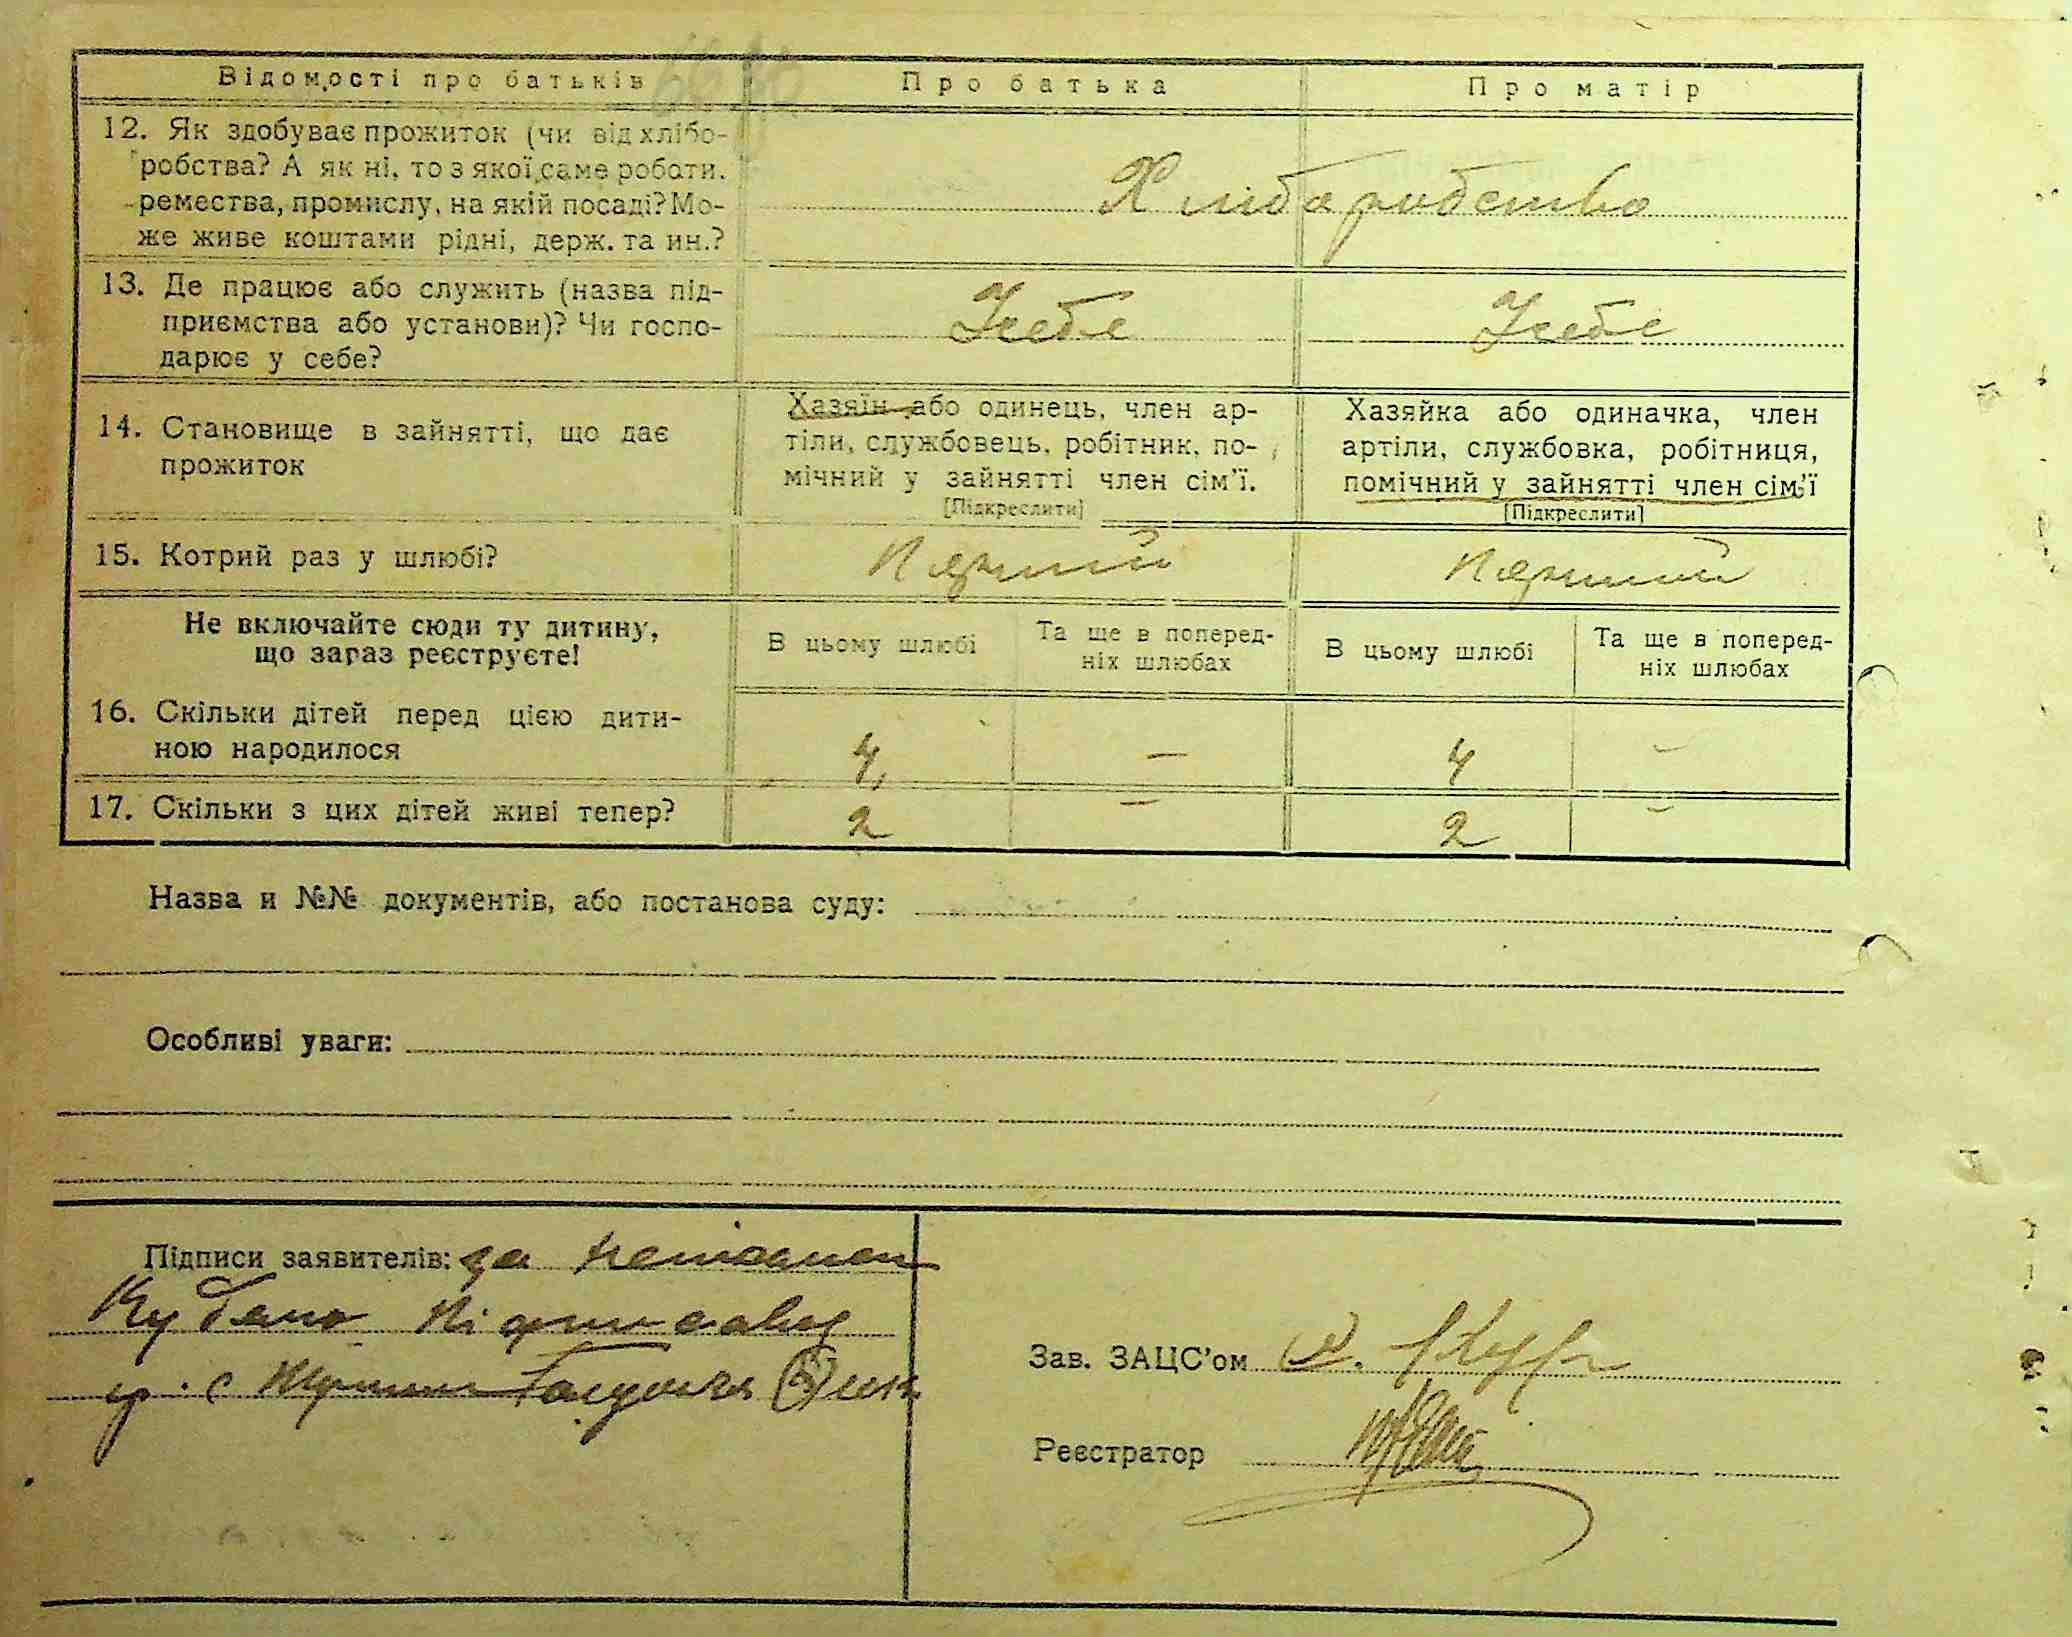 Відомості про батьків Про батька Про матір
12. Як здобуває прожиток (чи від хлібо-
робства? А як ні, то з якої саме роботи,
ремества, промислу, на якій посаді? Мо-
же живе коштами рідні, держ. та ин.?
Хліборобство
13. Де працює або служить (назва під-
приємства або установи)? Чи госпо-
дарює у себе?
У себе У себе
14. Становище в зайнятті, що дає
прожиток
Хазяїн або одинець, член ар-
тіли, службовець, робітник, по-
мічний у зайнятті член сім'ї.
[Підкреслити]
Хазяйка або одиначка, член
артіли, службовка, робітниця,
помічний у зайнятті член сім'ї
[Підкреслити]
15. Котрий раз у шлюбі? Перший Перший
Не включайте сюди ту дитину,
що зараз реєструєте!
В цьому шлюбі
Та ще в поперед-
ніх шлюбах
В цьому шлюбі
Та ще в поперед-
ніх шлюбах
16. Скільки дітей перед цією дити-
ною народилося
4 — 4 —
17. Скільки з цих дітей живі тепер? 2 — 2 —
Назва и №№ документів, або постанова суду:
Особливі уваги:
Підписи заявителів: за
гр. с
Зав. ЗАЦС'ом
Реєстратор